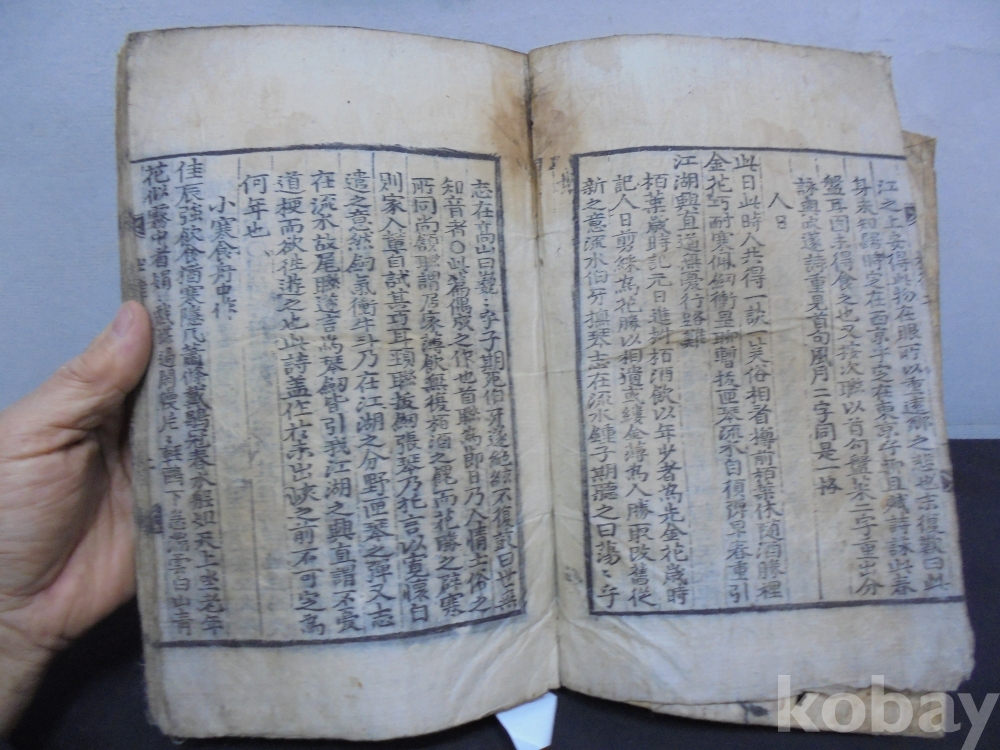 江之上安得此物在眼所以重遠鄕之悲也末復歎曰此
身未知歸時定在西京乎定在東京乎而且賦詩詠此春
盤耳因未得食之也又按次聯以首句盤菜二字重出分
詠故遂詩重見首句風月二字同是一格
人日
此日此時人共得一談一笑俗相看樽前栢葉休隨酒勝裡
金花巧耐寒佩劒衝星聊暫拔匣琴流水自須彈早春重引
江湖興直道無憂行路難
栢葉歲時記元日進椒栢酒飮以年少者爲先金花歲時
記人日剪綵爲花勝以相遺或鏤金薄爲人勝取改舊從
新之意流水伯牙撫琴志在流水鍾子期聽之曰蕩〻乎
志在高山曰巍〻乎子期死伯牙遂絶絃不復鼓曰世無
知音者○此篇偶成之作也首聯爲即日乃人情土俗之
所同尚頷聯謂乃家酒飮無後栢酒之罷而花勝之辟寒
則家人輩自試其巧耳頸聯拔劒張琴乃托言以寬懷自
遣之意然劒氣衝牛斗乃在江湖之分野匣琴之彈又志
在流水故尾聯遂言爲琴劒皆引我江湖之興直謂不憂
道梗而欲徃遊之也此詩盖作於未出峽之前不可定爲
何年也
小寒食舟中作
佳辰强飮食猶寒隱几蕭條戴鶡冠春水舡如天上坐老年
花似霧中看娟〻戱蝶過閑幔片〻輕鷗下急湍雲白山靑
kobay